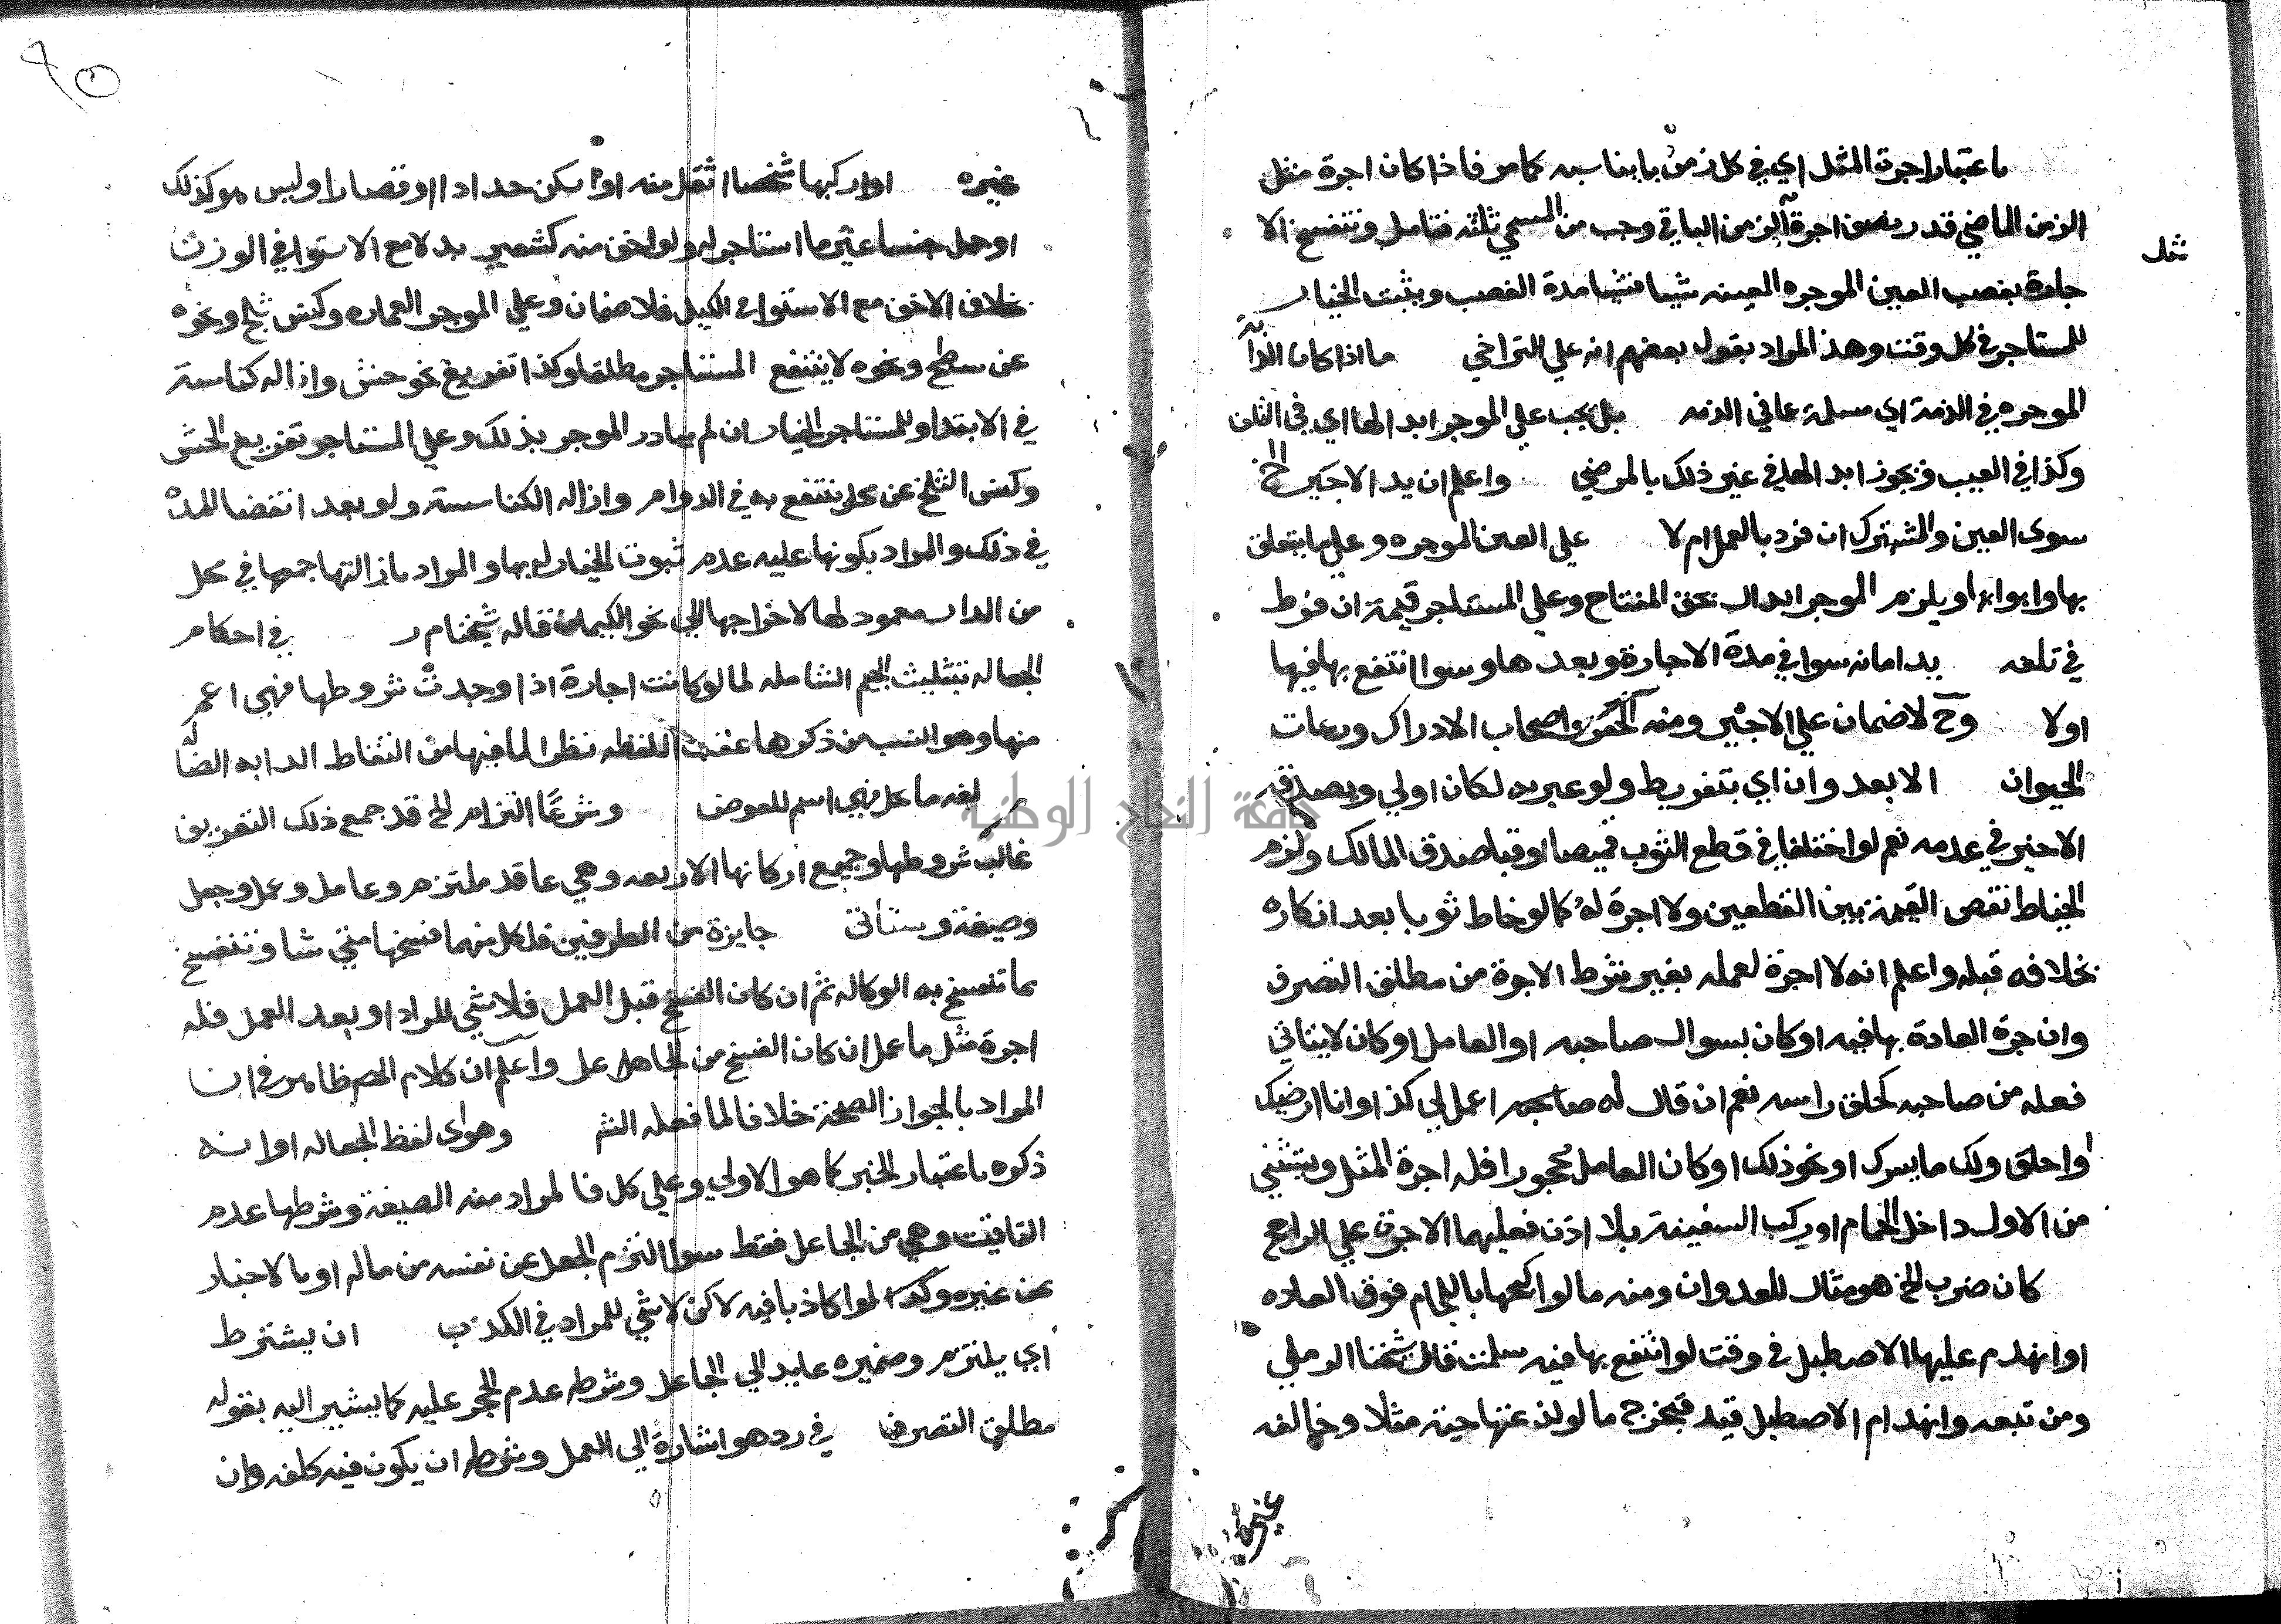 باعتبار اجرة المثل اي في كل زمن بما يناسبه كما مر فاذا كان اجرة مثل
الزمن الماضي قدر نصف اجرة الزمن الباقي وجب من المسمي ثلثه فتامل وتنفسخ الا
مثل
جارة بغصب العين الموجره المعينه شيا فشيا مدة الغصب ويثبت الخيار
للمستاجر في كل وقت وهذ المراد بقول بعضهم انه علي التراخي ما اذا كان الدا
الموجره في الذمة اي مسلمة عما في الذمه بل يجب علي الموجر ابدالها اي في التلف
وكذا في العيب ويجوز ابدالها في غير ذلك بالمرضي واعلم ان يد الاجير الخ
سوى العين والمشترك انفرد بالعمل ام لا علي العين الموجره وعلي ما يتعلق
بها وابوابها ويلزم الموجر ابدال نحو المفتاح وعلي المستاجر قيمة ان فرط
في تلفه يد امانه سوا في مدة الاجارة وبعدها وسوا انتفع بها فيها
اولا وح لا ضمان علي الاجير ومنه الخفر واصحاب الادراك ورعات
الحيوان الا بعدوان اي بتفريط ولو عبر به لكان اولي ويصدق
الاجير في عدمه نعم لو اختلفا في قطع الثوب قميصا او قبا صدق المالك ولزم
الخياط نقص القيمة بين القطعين ولا اجرة له كما لو خاط ثوبا بعد انكاره
بخلافه قبله واعلم انه لا اجرة لعمله بغير شرط الاجرة من مطلق التصرف
وان جرة العادة بها فيه او كان بسوال صاحبه او العامل او كان لا يتاتي
فعله من صاحبه كحلق راسه نعم ان قال له صاحبه اعمل لي كذا وانا ارضيك
او احلق ولك ما يسرك او نحو ذلك او كان العامل محجورا فله اجرة المثل ويستثني
من الاول داخل الحمام او يركب السفينة بلا اذن فعليهما الاجرة علي الراجح
كان ضرب الخ هو مثال للعدوان ومنه ما لو اكبحها باللجام فوق العاده
او انهدم عليها الاصطبل في وقت لو انتفع بها فيه سلمت قال شيخنا الرملي
ومن تبعه وانهدام الاصطبل قيد فيخرج ما لو لذعتها حية مثلا وخالفه
غيره
غيره او اركبها شخصا اثقل منه او اسكن حدادا او قصارا وليس هو كذلك
او حمل جنسا غير ما استاجر له ولو اخف منه كشعير بدلا مع الاستوا في الوزن
خلاف الاخف مع الاستوا في الكيل فلا ضمان وعلي الموجر العماره وكنس ثلج ونحوه
عن سطح ونحوه لا ينتفع المستاجر مطلقا وكذا تفريغ نحو حش وازاله كناسة
في الابتدا وللمستاجر الخيار ان لم يبادر الموجر بذلك وعلي المستاجر تفريغ الحش
وكنس الثلج عن محل ينتفع به في الدوام وازاله الكناسة ولو بعد انقضا المده
في ذلك والمراد بكونها عليه عدم ثبوت الخيار له بها والمراد بازالتها جمعها في محل
من الدار معمود لها لا خراجها الي نحو الكيمان قاله شيخنا م ر في احكام
الجعاله بتثليث الجيم الشامله لما لو كانت اجارة اذا وجدت شروطها فهي اعم
منها وهو انسب من ذكرها عقب اللقطه نظرا لما فيها من التقاط الدابه الضاله
لغه ما جعل فهي اسم للعوض وشرعًا التزام الخ قد جمع ذلك التعريف
غالب شروطها وجميع اركانها الاربعه وهي عاقد ملتزم وعامل وعمل وجعل
وصيغة وستاتي جايزة من الطرفين فلكل منهما فسخها متي شا وتنفسخ
بما تنفسخ به الوكاله ثم ان كان الفسخ قبل العمل فلا شي للراد او بعد العمل فله
اجرة مثل ما عمل ان كان الفسخ من الجاعل واعلم ان كلام المص ظاهر في ان
المراد بالجواز الصحة خلافا لما فعله الش وهو اي لفظ الجعاله او انه
ذكره باعتبار الخبر كما هو الاولي وعلي كل فالمراد منه الصيغة وشرطها عدم
التاقيت وهي من الجاعل فقط سوا التزم الجعل عن نفسه من ماله او بالاخبار
عن غيره وكذا لو كاذبا فيه لاكن لا شي للراد في الكذب ان يشترط
اي يلتزم وضميره عايد الي الجاعل وشرطه عدم الحجر عليه كما يشير اليه بقوله
مطلق التصرف في رد هو اشارة الي العمل وشرطه ان يكون فيه كلفه وان
جامعة النجاح الوطنية